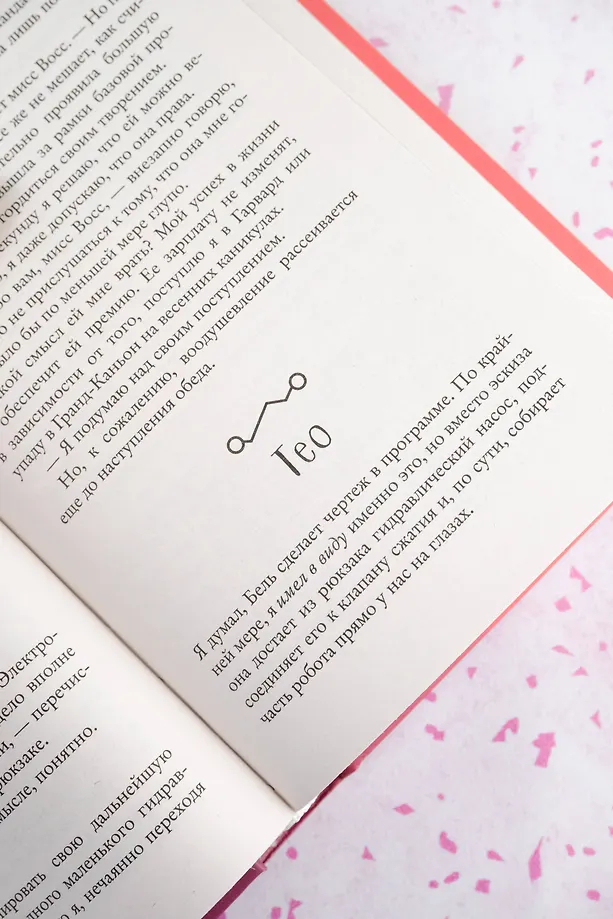 а лишь по
т мисс Восс. — Но п
се же не мешает, как счи-
тельно проявила большую
вышла за рамки базовой про-
гордиться своим творением.
секунду я решаю, что ей можно ве-
, я даже допускаю, что она права.
о вам, мисс Восс, — внезапно говорю,
о не прислушаться к тому, что она мне го-
ыло бы по меньшей мере глупо.
кой смысл ей мне врать? Мой успех в жизни
обеспечит ей премию. Ее зарплату не изменят,
в зависимости от того, поступлю я в Гарвард или
упаду в Гранд-Каньон на весенних каникулах.
— Я подумаю над своим поступлением.
Но, к сожалению, воодушевление рассеивается
еще до наступления обеда.
Тео
Я думал, Бель сделает чертеж в программе. По край-
ней мере, я имел в виду именно это, но вместо эскиза
она достает из рюкзака гидравлический насос, под-
соединяет его к клапану сжатия и, по сути, собирает
часть робота прямо у нас на глазах.
Электро-
дело вполне
и, — перечис-
рюкзаке.
мысле, понятно.
ировать свою дальнейшую
дного маленького гидрав-
о я, нечаянно переходя